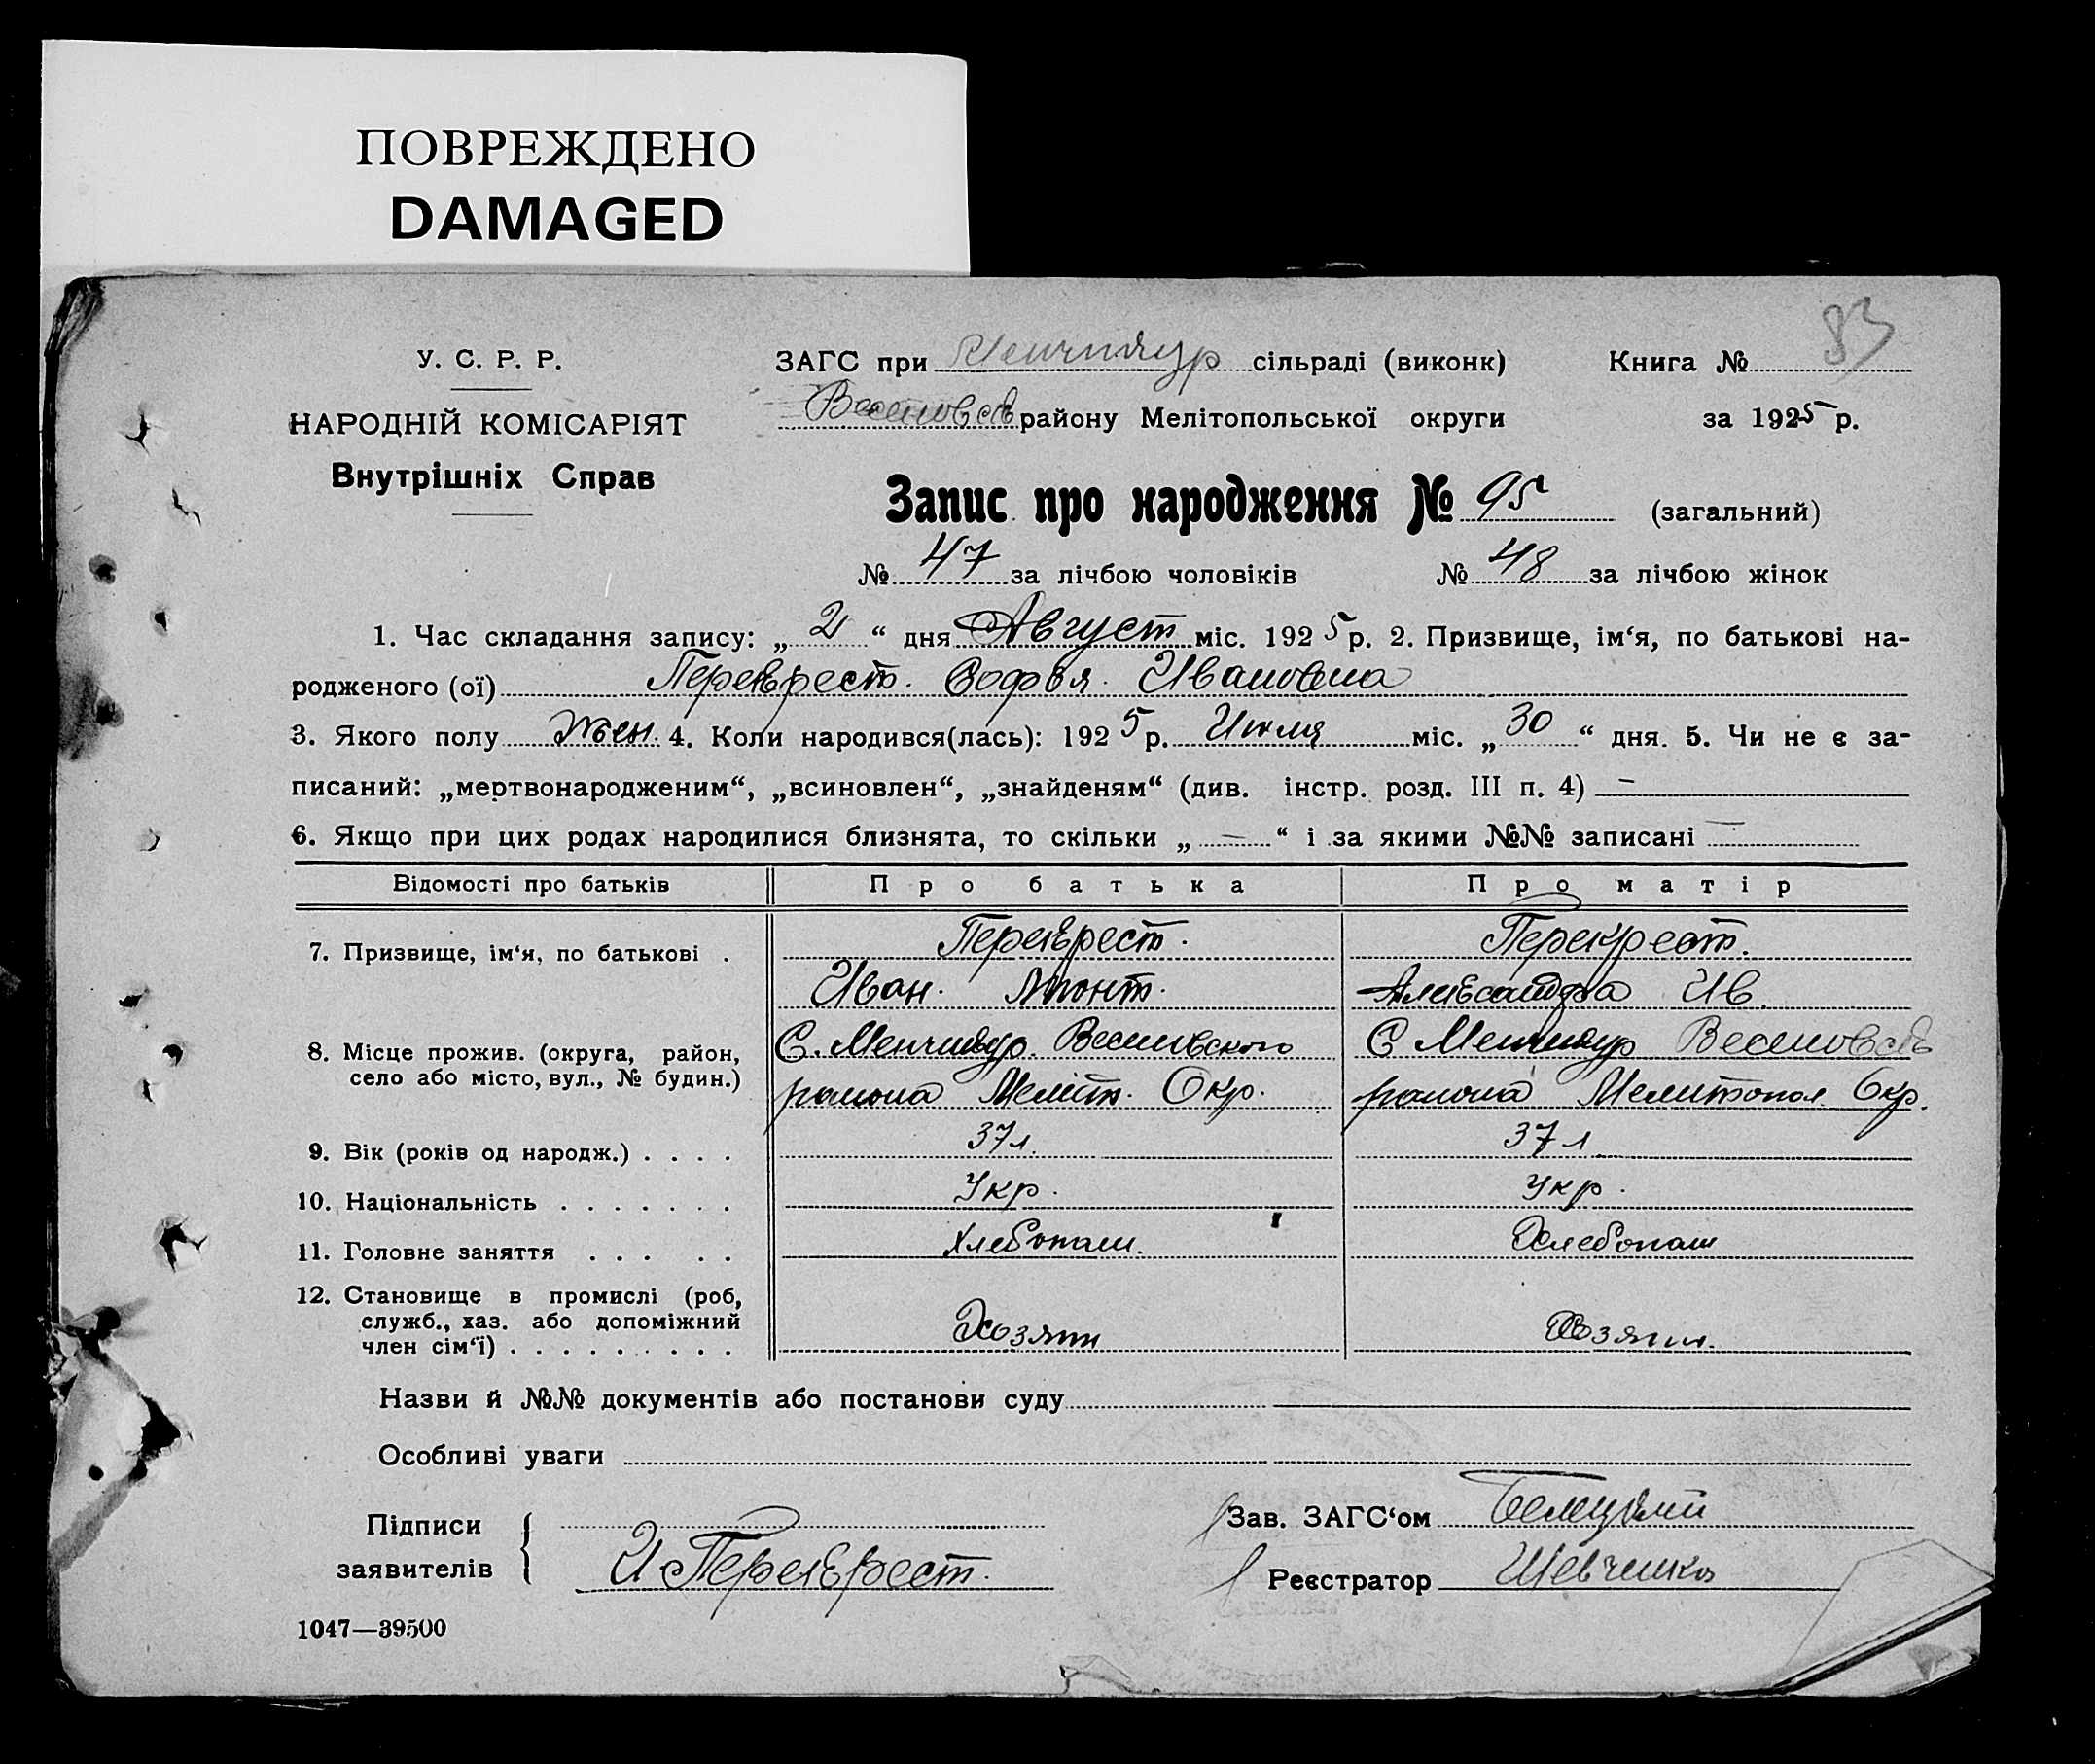 ПОВРЕЖДЕНО
DAMAGED
83
У. С. Р. Р.
НАРОДНІЙ КОМІСАРІЯТ
Внутрішніх Справ
ЗАГС при Менчикур сільраді (виконк) Книга №
району Мелітопольської округи за 1925 р.
Запис про народження № 95 (загальний)
№ 47 за лічбою чоловіків № 48 за лічбою жінок
1. Час складання запису: „ 2 “ дня Август міс. 1925 р. 2. Призвище, ім‘я, по батькові на-
родженого (ої) Перекрест. Софья. Ивановна
3. Якого полу жен. 4. Коли народився(лась): 1925 р. Июля міс. „ 30 “ дня. 5. Чи не є за-
писаний: „мертвонародженим“, „всиновлен“, „знайденям“ (див. інстр. розд. III п. 4) —
6. Якщо при цих родах народилися близнята, то скільки „ — “ і за якими №№ записані —
Відомості про батьків Про батька Про матір
7. Призвище, ім‘я, по батькові . Перекрест. Перекрест.
Иван. Александра Ив.
8. Місце прожив. (округа, район, С. Менчикур. Веселовского С Менчикур
село або місто, вул., № будин.) района Меліт. Окр. района Мелитопол. Окр.
9. Вік (років од народж.) . . . . 37 л. 37 л
10. Національність . . . . . . . Укр. Укр.
11. Головне заняття . . . . . Хлебопаш. Хлебопаш
12. Становище в промислі (роб,
служб., хаз. або допоміжний Хозяин Хозяин.
член сім‘ї) . . . . . . . . .
Назви й №№ документів або постанови суду
Особливі уваги
Підписи
заявителів И Перекрест.
Зав. ЗАГС‘ом Белецкий
Реєстратор Шевченко
1047—39500